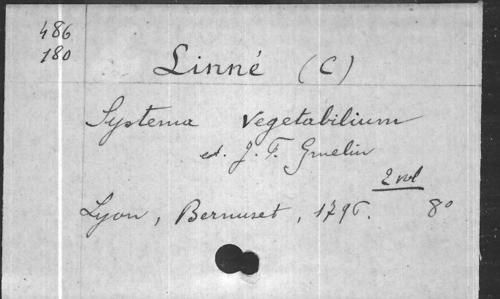 486
180
Linné (C)
Systema Vegetabilium
ed. J. F. Gmelin
2 vol
Lyon, Bernuset, 1796. 8°